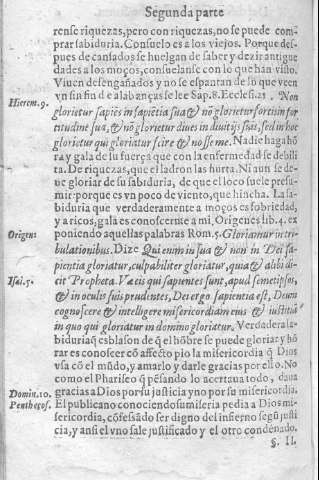 Segunda parte
rense riquezas, pero con riquezas, no se puede com-
prar sabiduria. Consuelo es a los viejos. Porque des-
pues de cansados se huelgan de saber y dezir antigue
dades a los moços, consuelanse con lo que han visto.
Viuen desengañados y no se espantan de lo que veen
yn sin fin de alabanças se lee Sap. 8. Eccles. 21. Non
Hierem. 9.
glorietur sapies in sapiẽtia sua & nõ glorietur fortis in for
titudine sua, & nõ glorietur diues in diuitijs suis, sed in hoc
glorietur qui gloriatur scire & nosse me. Nadie haga hõ
ra y gala de su fuerça que con la enfermedad se debili
ta. De riquezas, que el ladron las hurta. Ni aun se de-
ue gloriar de su sabiduria, de que el loco suele presu-
mir: porque es vn poco de viento, que hincha. La sa-
biduria que verdaderamente a moços es sobriedad,
y a ricos, gala es conoscerme a mi, Origenes lib. 4. ex
Origen:
poniendo aquellas palabras Rom. 5. Gloriamur in tri-
bulationibus. Dize Qui enim in sua & non in Dei sa-
pientia gloriatur, culpabiliter gloriatur, quia & alibi di-
cit Propheta. Væ eis qui sapientes sunt, apud semetipsos,
Isai. 5.
& in oculis suis prudentes, Dei ergo sapientia est, Deum
cognoscere & intelligere misericordiam eius & iustitiã
in quo qui gloriatur in domino gloriatur. Verdadera sa-
biduria q̃ es blason de q̃ el hõbre se puede gloriar y hõ
rar es conoscer cõ affecto pio la misericordia q̃ Dios
vsa cõ el mũdo, y amarlo y darle gracias por ello. No
como el Phariseo q̃ pẽsando lo acertaua todo, daua
Domin. 10.
gracias a Dios por su justicia y no por su misericordia.
Penthecos.
El publicano conosciendo su miseria pedia a Dios mi-
sericordia, cõfesãdo ser digno del infierno segũ justi
cia, y ansi el vno sale justificado y el otro condenado.
§. II.